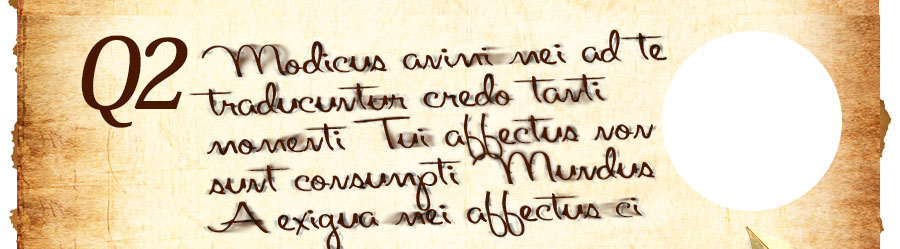 Q2
Modicus animi mei ad te
traducuntur credo tanti
momenti Tui affectus non
sunt consumpti Mundus
A exigua mei affectus ci